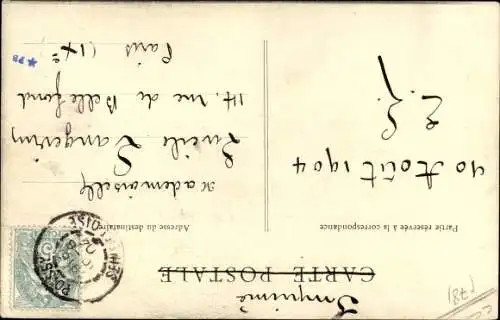 Imprimé
CARTE POSTALE
Partie réservée à la correspondance
Adresse du destinataire
10 Août 1904
Mademoiselle
Lucile Langevin
14. rue de Bellefond
Paris (IXe)
SEINE-ET-OISE
(78)